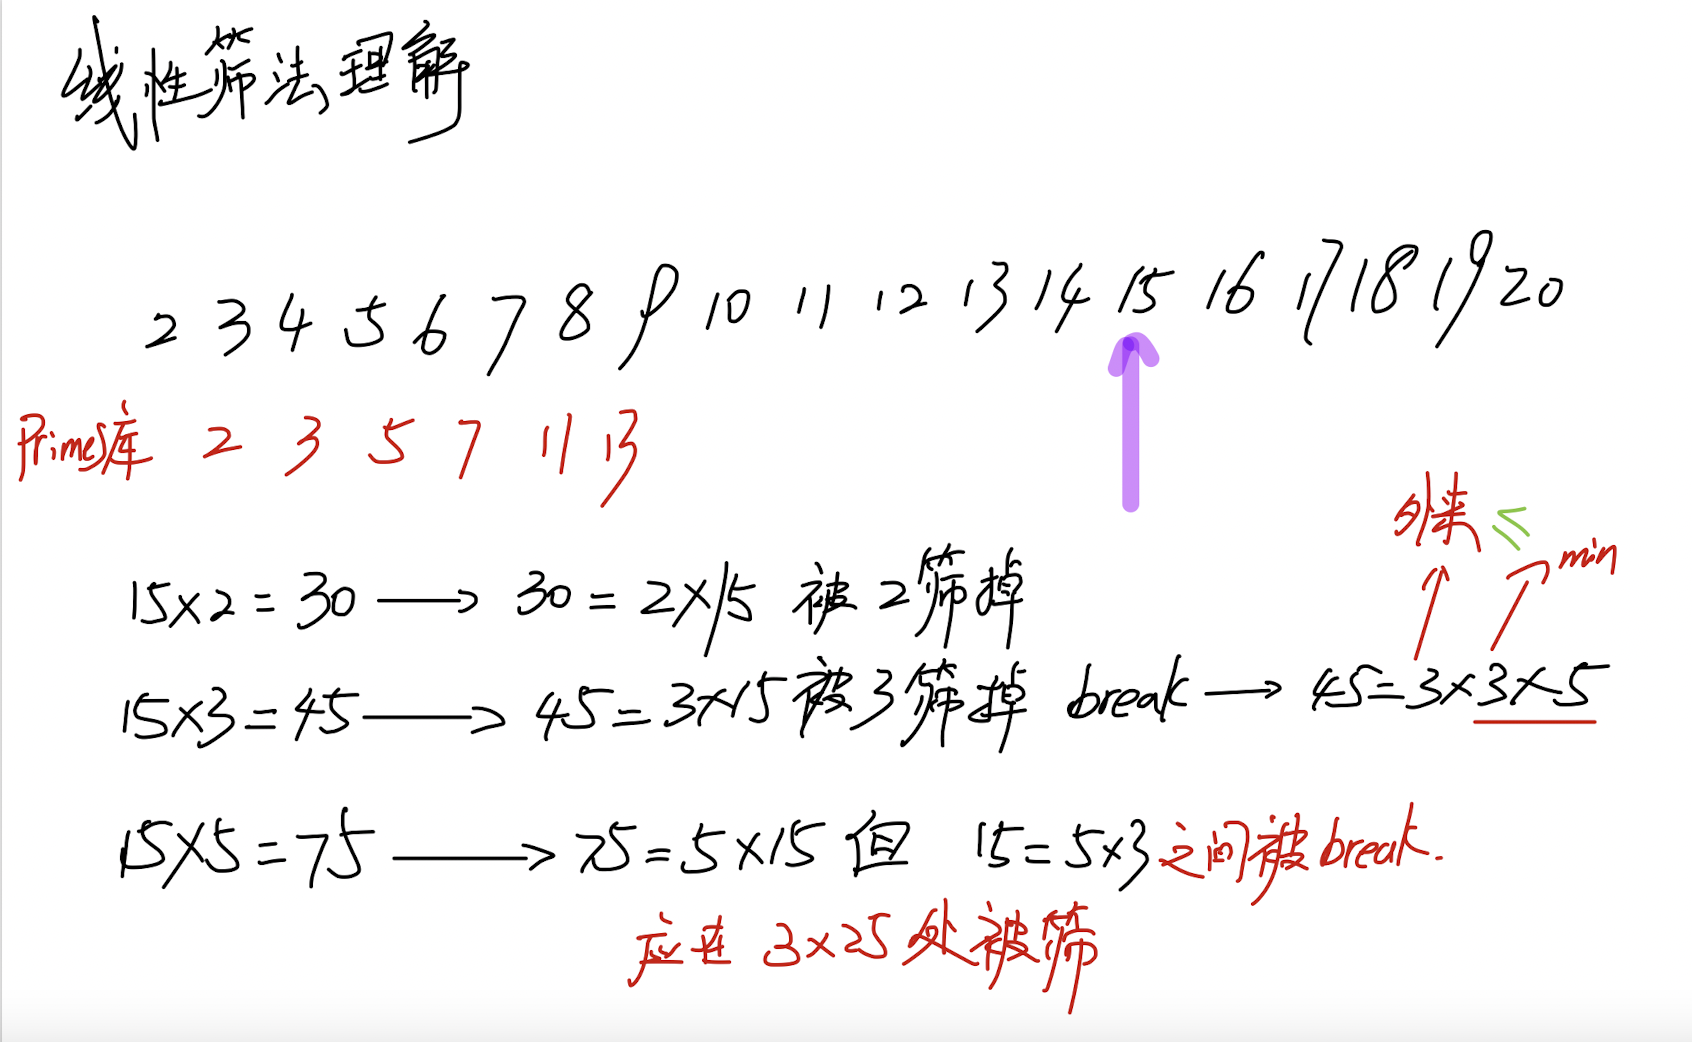 线性筛法理解
2 3 4 5 6 7 8 9 10 11 12 13 14 15 16 17 18 19 20
Primes库 2 3 5 7 11 13
外来 ≤ min
15×2=30 → 30=2×15 被2筛掉
15×3=45 → 45=3×15被3筛掉 break → 45=3×3×5
15×5=75 → 75=5×15 但 15=5×3之间被break.
应在 3×25处被筛